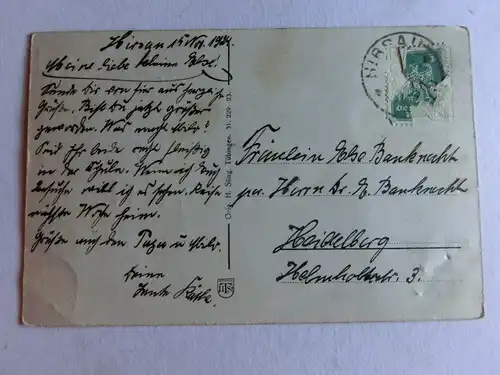 Hirsau 15 Nov. 1924.
Meine liebe kleine Else!
Sende Dir von hier aus herzge
Grüße. Bist Du jetzt größer
geworden. Was macht
Seid Ihr beide recht fleißig
in der Schule. Wenn ich Euch
will ich es sehen. Reise
nächste Woche heim.
Grüße auch den Papa u.
Deine
Tante
Orig. H. Sting, Tübingen 31. 229. 23.
HIRSAU
Fräulein Else Bankracht
pr. Herrn Dr. E. Bankracht
Heidelberg
Helmholtzstr. 3.